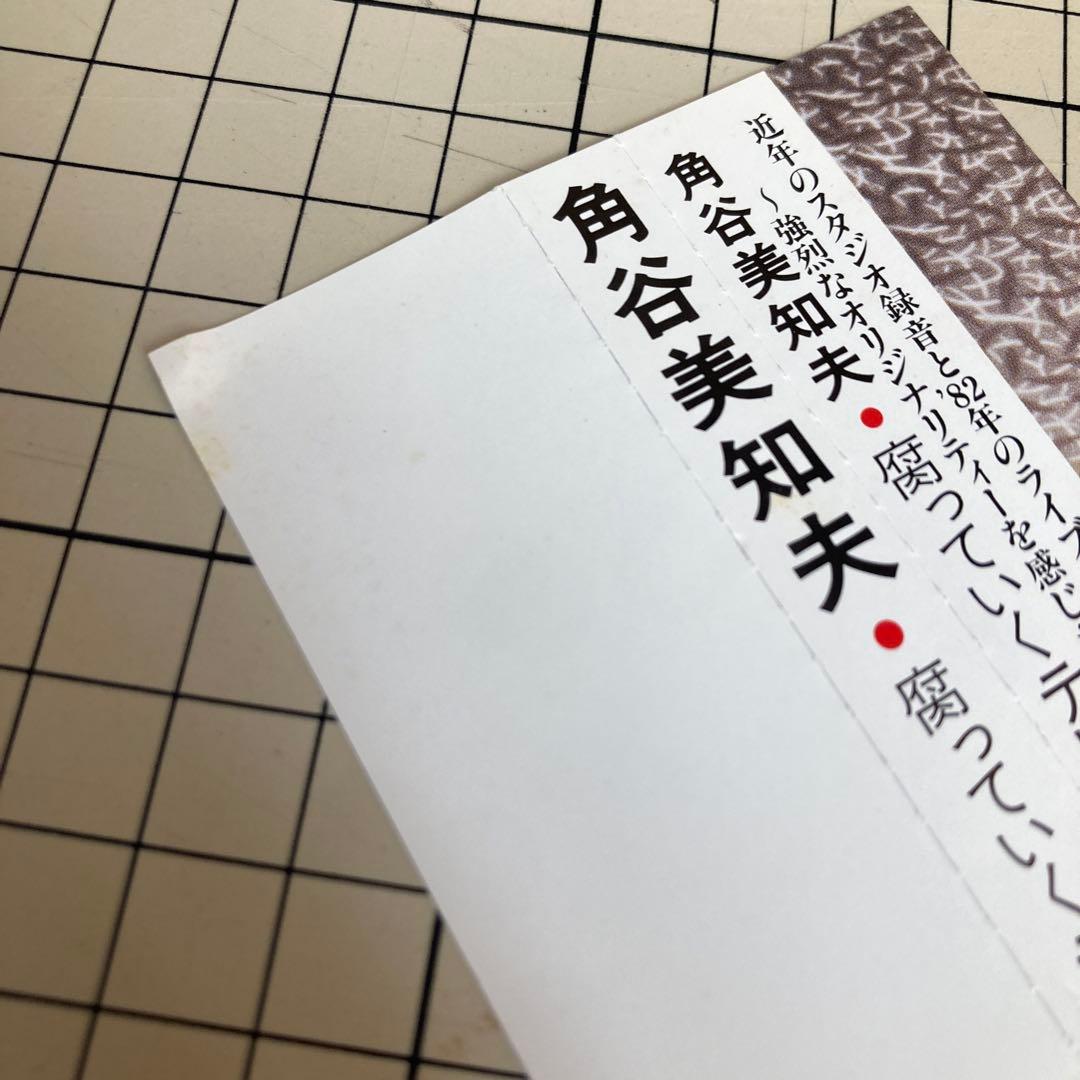 近年のスタジオ録音と'82年のライブ
〜強烈なオリジナリティーを感じ
角谷美知夫●腐っていくテ
角谷美知夫●腐っていく